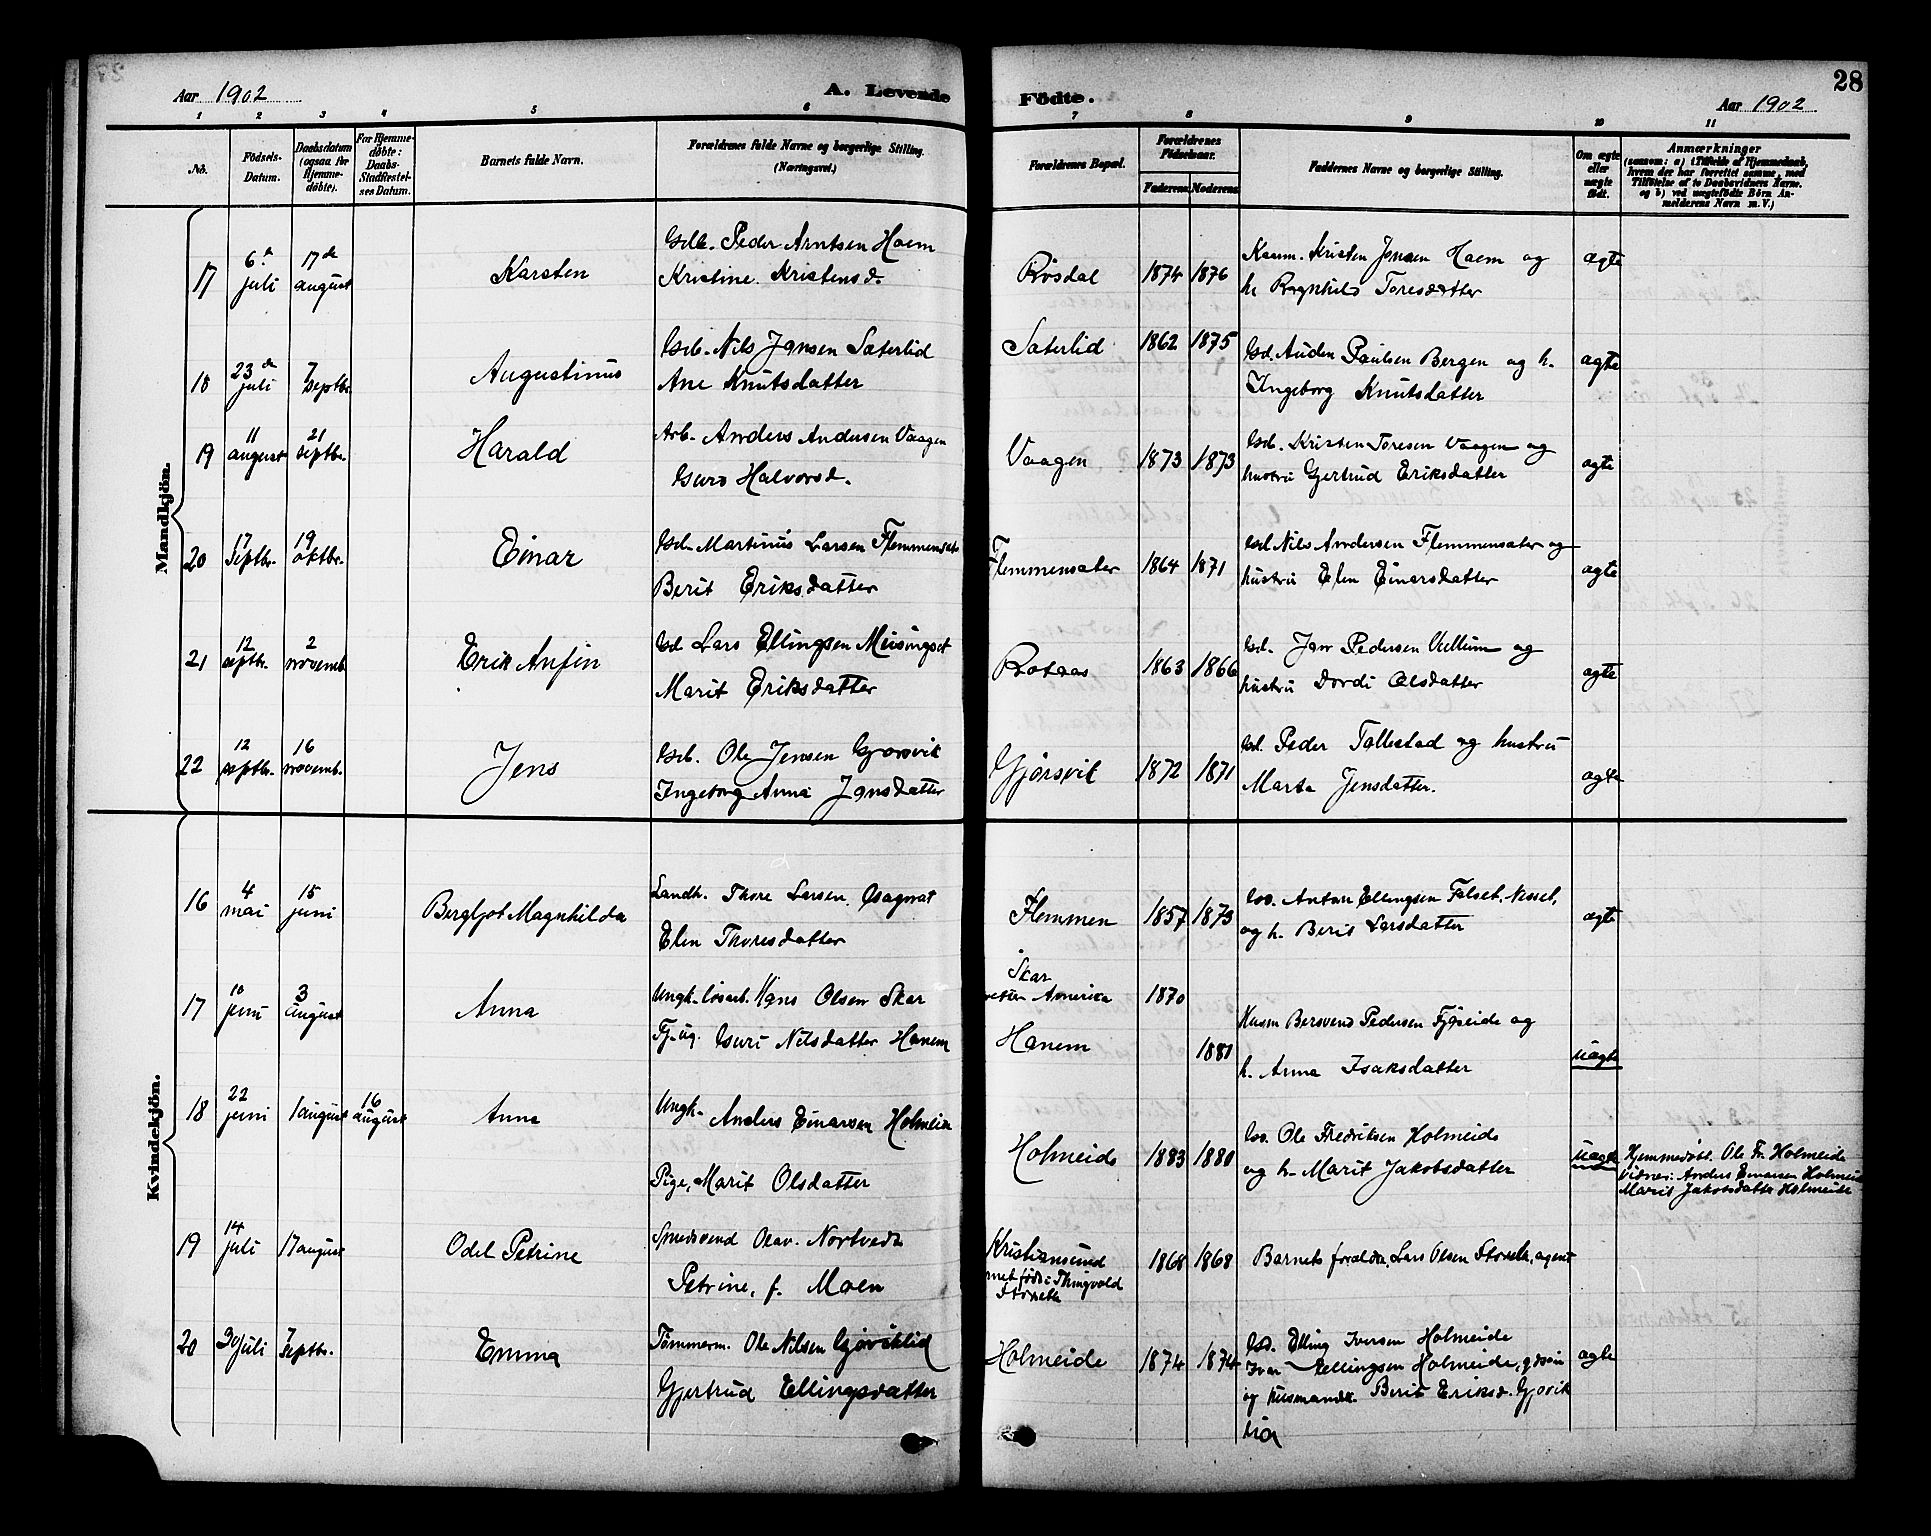 Aar 1902 A. Levende Födte. Aar 1902 28
1 2 3 4 5 6 7 8 9 10 11
No.
Födsels-Datum.
Daabsdatum (ogsaa for Hjemme-döbte).
For Hjemme-döbte: Daabs-Stadfæstel-ses Datum.
Barnets fulde Navn.
Forældrenes fulde Navne og borgerlige Stilling. (Næringsvei.)
Forældrenes Bopæl.
Forældrenes Födselsaar.
Faderens Moderens
Faddernes Navne og borgerlige Stilling.
Om ægte eller uægte födt.
Anmærkninger
(saasom: a) i Tilfælde af Hjemmedaab, hvem der har forrettet samme, med Tilföielse af to Daabsvidners Navne. og b) ved uægtefödte Börn An-melderens Navn m. V.)
Mandkjön.
17 6te juli 17de august Karsten
Gdb. Peder Arntsen Haem
Kristine Kristensd.
Rösdal 1874 1876
Kaum. Kristen Jonsen Haem og
h. Ragnhild Toresdatter
ægte
18 23de juli 7 septbr. Augustinus
Gdb. Nils Jansen Sæterlid
Ane Knutsdatter
Sæterlid 1862 1875
Gd. Auden Paulsen Bergen og h.
Ingeborg Knutsdatter
ægte
19 11 august 21 septbr. Harald
Arb. Anders Andersen Vaagen
Guro Halvorsd.
Vaagen 1873 1873
Gdb. Kristen Toresen Vaagen og
hustru Gjertrud Eriksdatter
ægte
20 17 septbr. 19 oktbr. Einar
Gd. Martinus Larsen Flemmensæt
Berit Eriksdatter
Flemmensæter 1864 1871
Gd Nils Andersen Flemmensæter og
hustru Elen Einarsdatter
ægte
21 12 septbr. 2 novemb. Erik Anfin
Gd Lars Ellingsen Meisingset
Marit Eriksdatter
Rotaas 1863 1866
Gd. Jon Pedersen Vullum og
hustru Dordi Olsdatter
ægte
22 12 septbr. 16 novemb. Jens
Gdb. Ole Jensen Gjørsvik
Ingeborg Anna Jonsdatter
Gjørsvik 1872 1871
Gd. Peder Tøllestad og hustru
Marta Jensdatter.
ægte
Kvindekjön.
16 4 mai 15 juni Bergljot Magnhilda
Landh. Thore Larsen
Elen Thoresdatter
Flemmen 1857 1873
Anton Ellingsen Falset, Nesset,
og h. Berit Larsdatter
ægte
17 10 juni 3 august Anna
Ungk. løsarb. Hans Olsen Skar
Tj. ug. Guri Nilsdatter Hanem
Skar
Amerika 1870
Hanem 1881
Husm Bersvend Pedersen Fjøseide og
h. Anna Isaksdatter
uægte
18 22 juni 1 august 16 august Anna
Ungk. Anders Einarsen Holmeide
Pige, Marit Olsdatter
Holmeide 1883 1880
Ole Fredriksen Holmeide
og h. Marit Jakobsdatter
uægte
Hjemmedøbt. Ole Fr. Holmeide
Vidner: Anders Einarsen Holmeide
Marit Jakobsdatter Holmeide
19 14 juli 17 august Odel Petrine
Smedsvend Olav Nortvedt
Petrine, f. Moen
Kristiansund
født i Thingvold
1868 1868
Barnets forældre, Lars Olsen agent
20 30 juli 7 septbr. Emma
Tømmerm. Ole Nilsen Gjøviklid
Gjertrud Ellingsdatter
Holmeide 1874 1874
Gd. Elling Iversen Holmeide
Ivar Ellingsen Holmeide, gdsøn
og Husmandk. Berit Eriksd. Gjøvik
lia
ægte